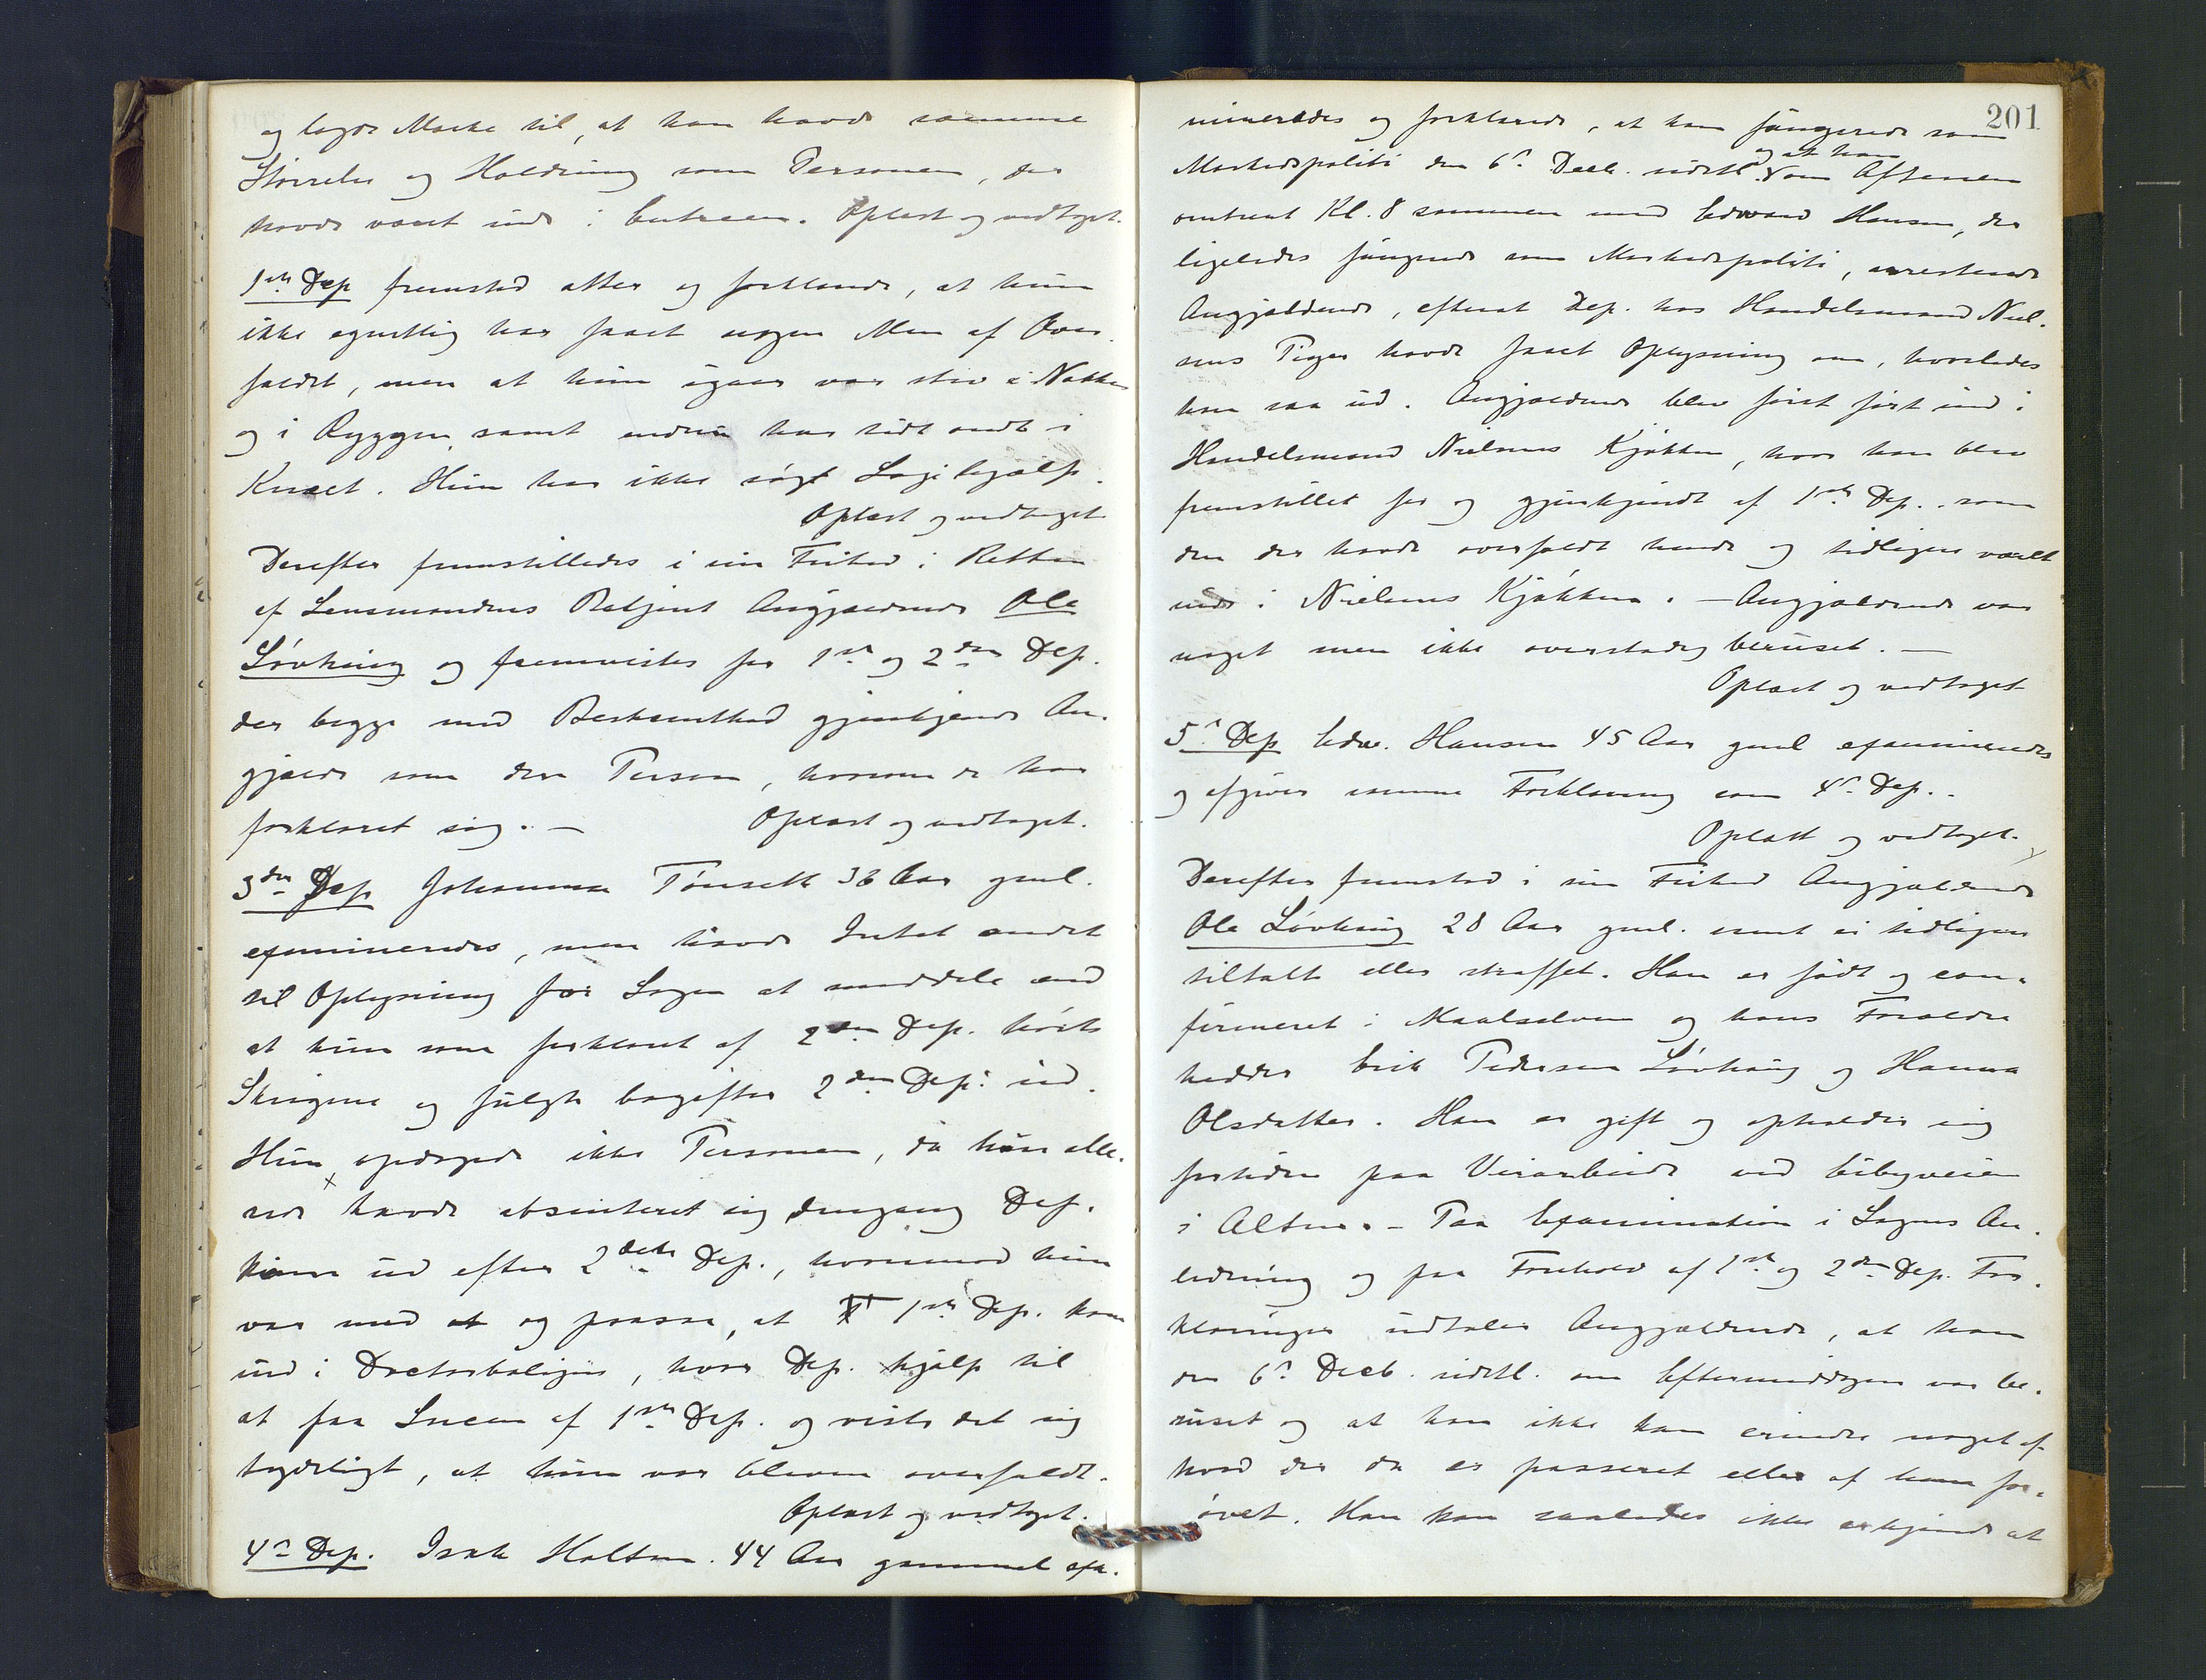 og lagde Mærke til, at han havde samme
Størrelse og Holdning som Personen, der
havde været inde i Entreen. Oplæst og vedtaget.
1ste Dep fremstod atter og forklarede, at hun
ikke egentlig har faaet nogen Men af Over-
faldet, men at hun igaar var stiv i Nakken
og i Ryggen, samt endnu har lidt ondt i
Knæet. Hun har ikke søgt Lægehjælp.
Oplæst og vedtaget
Derefter fremstilledes i sin Frihed i Retten
af Lensmandens Betjent Angjældende Ole
Løvhaug og fremvistes for 1ste og 2den Dep.
der begge med Bestemthed gjenkjende An-
gjældende som den Person, hvorom de har
forklaret sig. — Oplæst og vedtaget.
3den Dep Johanna Tønseth 36 Aar gml.
examineredes, men havde Intet andet
til Oplysning for Sagen at meddele end
at hun som forklaret af 2den Dep. hørte
Skrigene og fulgte bagefter 2den Dep. ud.
Hun opdagede ikke Personen, da han alle-
rede havde absenteret sig dengang Dep.
kom ud efter 2den Dep., hvorimod hun
var med at og passe, at 1ste Dep. kom
ind i Doctorboligen, hvor Dep. hjalp til
at faa Sneen af 1ste Dep. og viste det sig
tydeligt, at hun var bleven overfaldt.
Oplæst og vedtaget.
4de Dep. Isak Holtan. 44 Aar gammel exa-
201
mineredes og forklarede, at han fungerede som
og at han
Markedspoliti den 6te Decb. sidstl. om Aftenen
omtrent Kl. 8 sammen med Edvard Hansen, der
ligeledes fungerede som Markedspoliti, arresterede
Angjældende, efterat Dep. hos Handelsmand Niel-
sens Piger havde faaet Oplysning om, hvorledes
han saa ud. Angjældende blev først ført ind i
Handelsmand Nielsens Kjøkken, hvor han blev
fremstillet for og gjenkjendt af 1ste Dep. som
den der havde overfaldt hende og tidligere været
inde i Nielsens Kjøkken. — Angjældende var
noget men ikke overstadig beruset. —
Oplæst og vedtaget
5te Dep Edv. Hansen 45 Aar gml examineredes
og afgiver samme Forklaring som 4de Dep..
Oplæst og vedtaget.
Derefter fremstod i sin Frihed Angjældende
Ole Løvhaug 28 Aar gml. samt ei tidligere
tiltalt eller straffet. Han er født og con-
firmeret i Maalselven og hans Forældre
hedder Erik Pedersen Løvhaug og Hanna
Olsdatter. Han er gift og opholder sig
fortiden paa Veiarbeide ved Eibyveien
i Alten. — Paa Examination i Sagens An-
ledning og paa Forehold af 1ste og 2den Dep. For-
klaringer udtaler Angjældende, at han
den 6te Decb. sidstl. om Eftermiddagen var be-
ruset og at han ikke kan erindre noget af
hvad der da er passeret eller af ham for-
øvet. Han kan saaledes ikke erkjende at